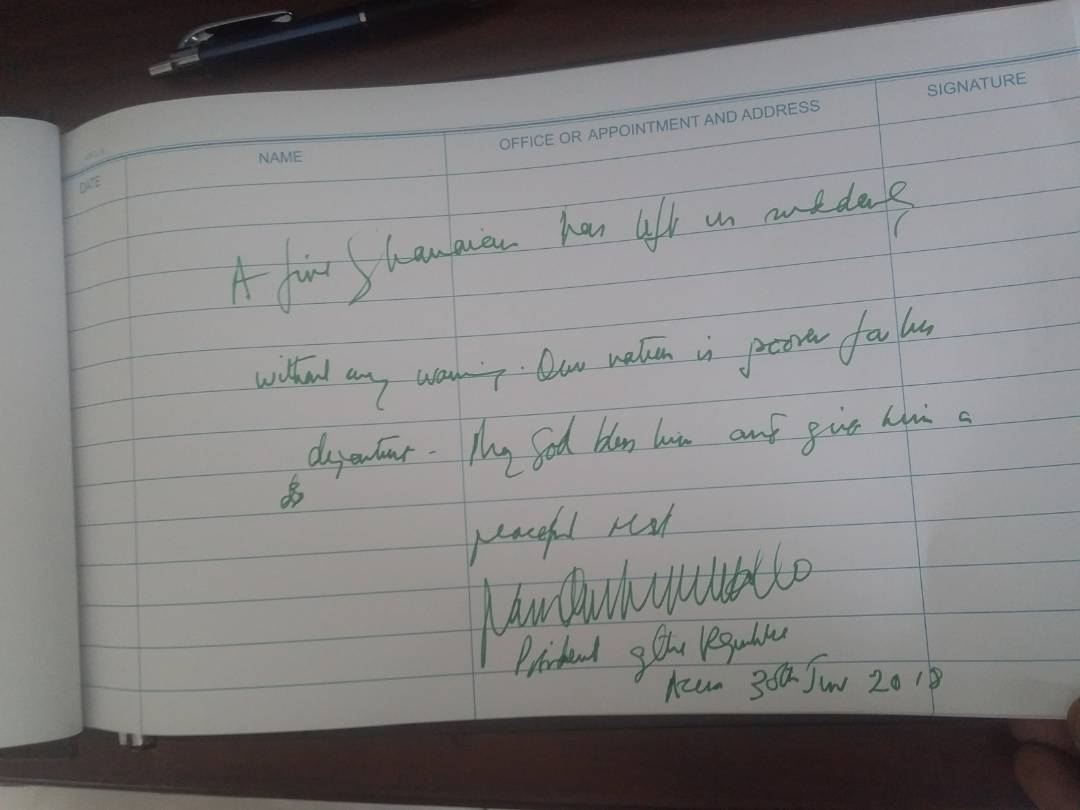 DATE NAME OFFICE OR APPOINTMENT AND ADDRESS SIGNATURE
A fine Ghanaian has left us suddenly
without any warning. Our nation is poorer for his
departure - May God bless him and give him a
peaceful rest
President of the Republic
Accra 30th June 2018